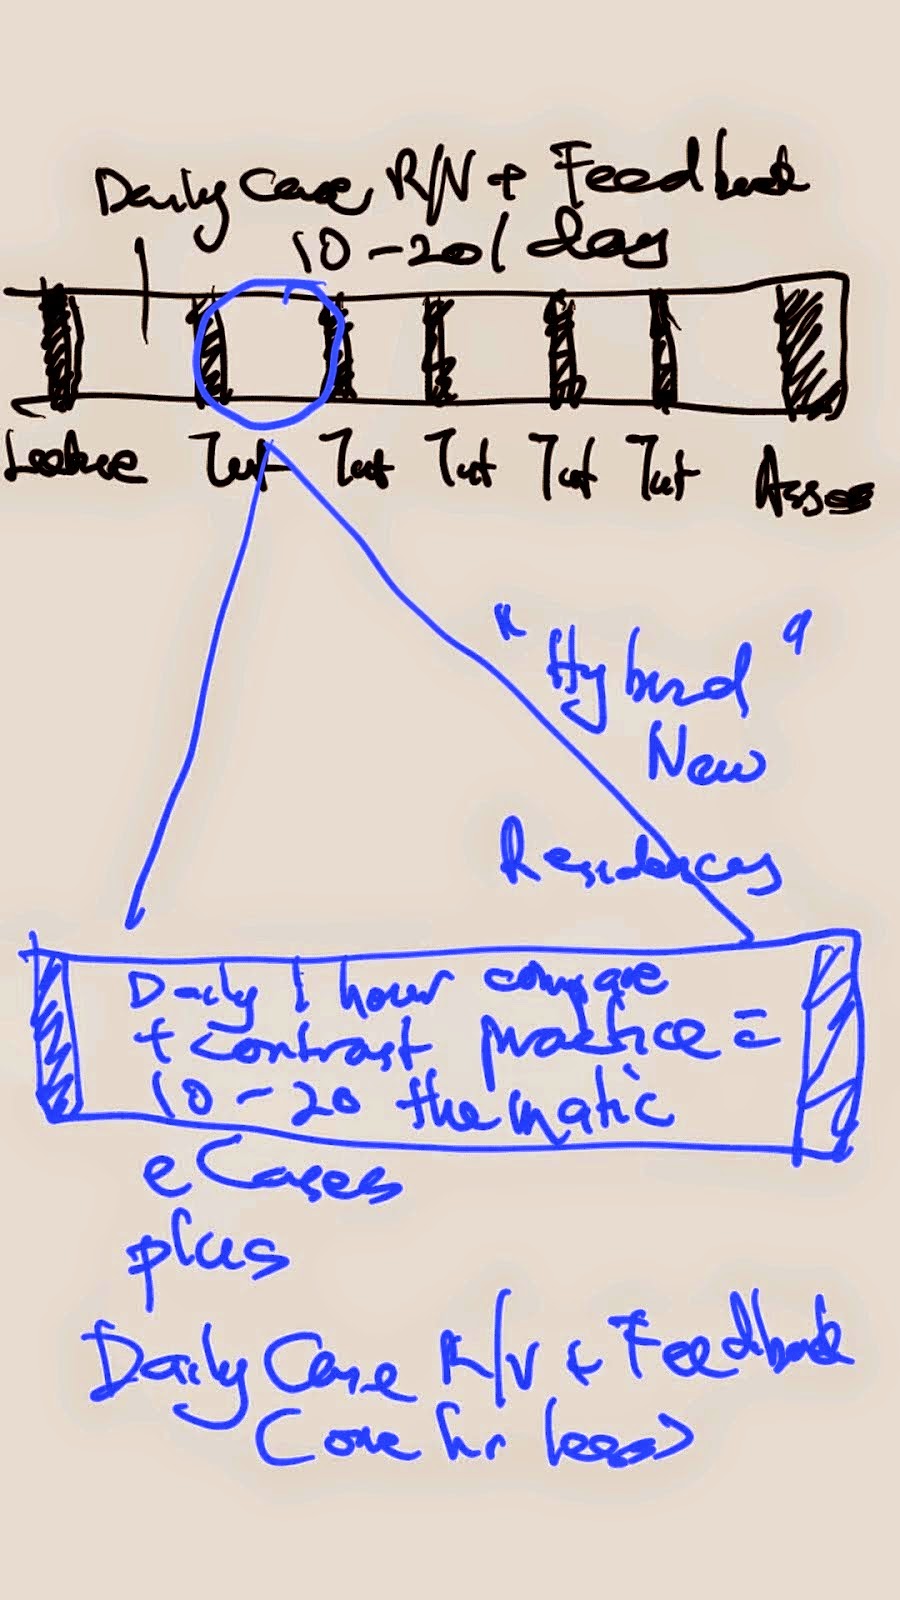 Daily Case R/V + Feedback
10-20/day
Lecture Tut Tut Tut Tut Tut Assess
"Hybrid"
New
Residences
Daily 1 hour compare
+ contrast practice =
10-20 thematic
eCases
plus
Daily Case R/V + Feedback
(one hr less)